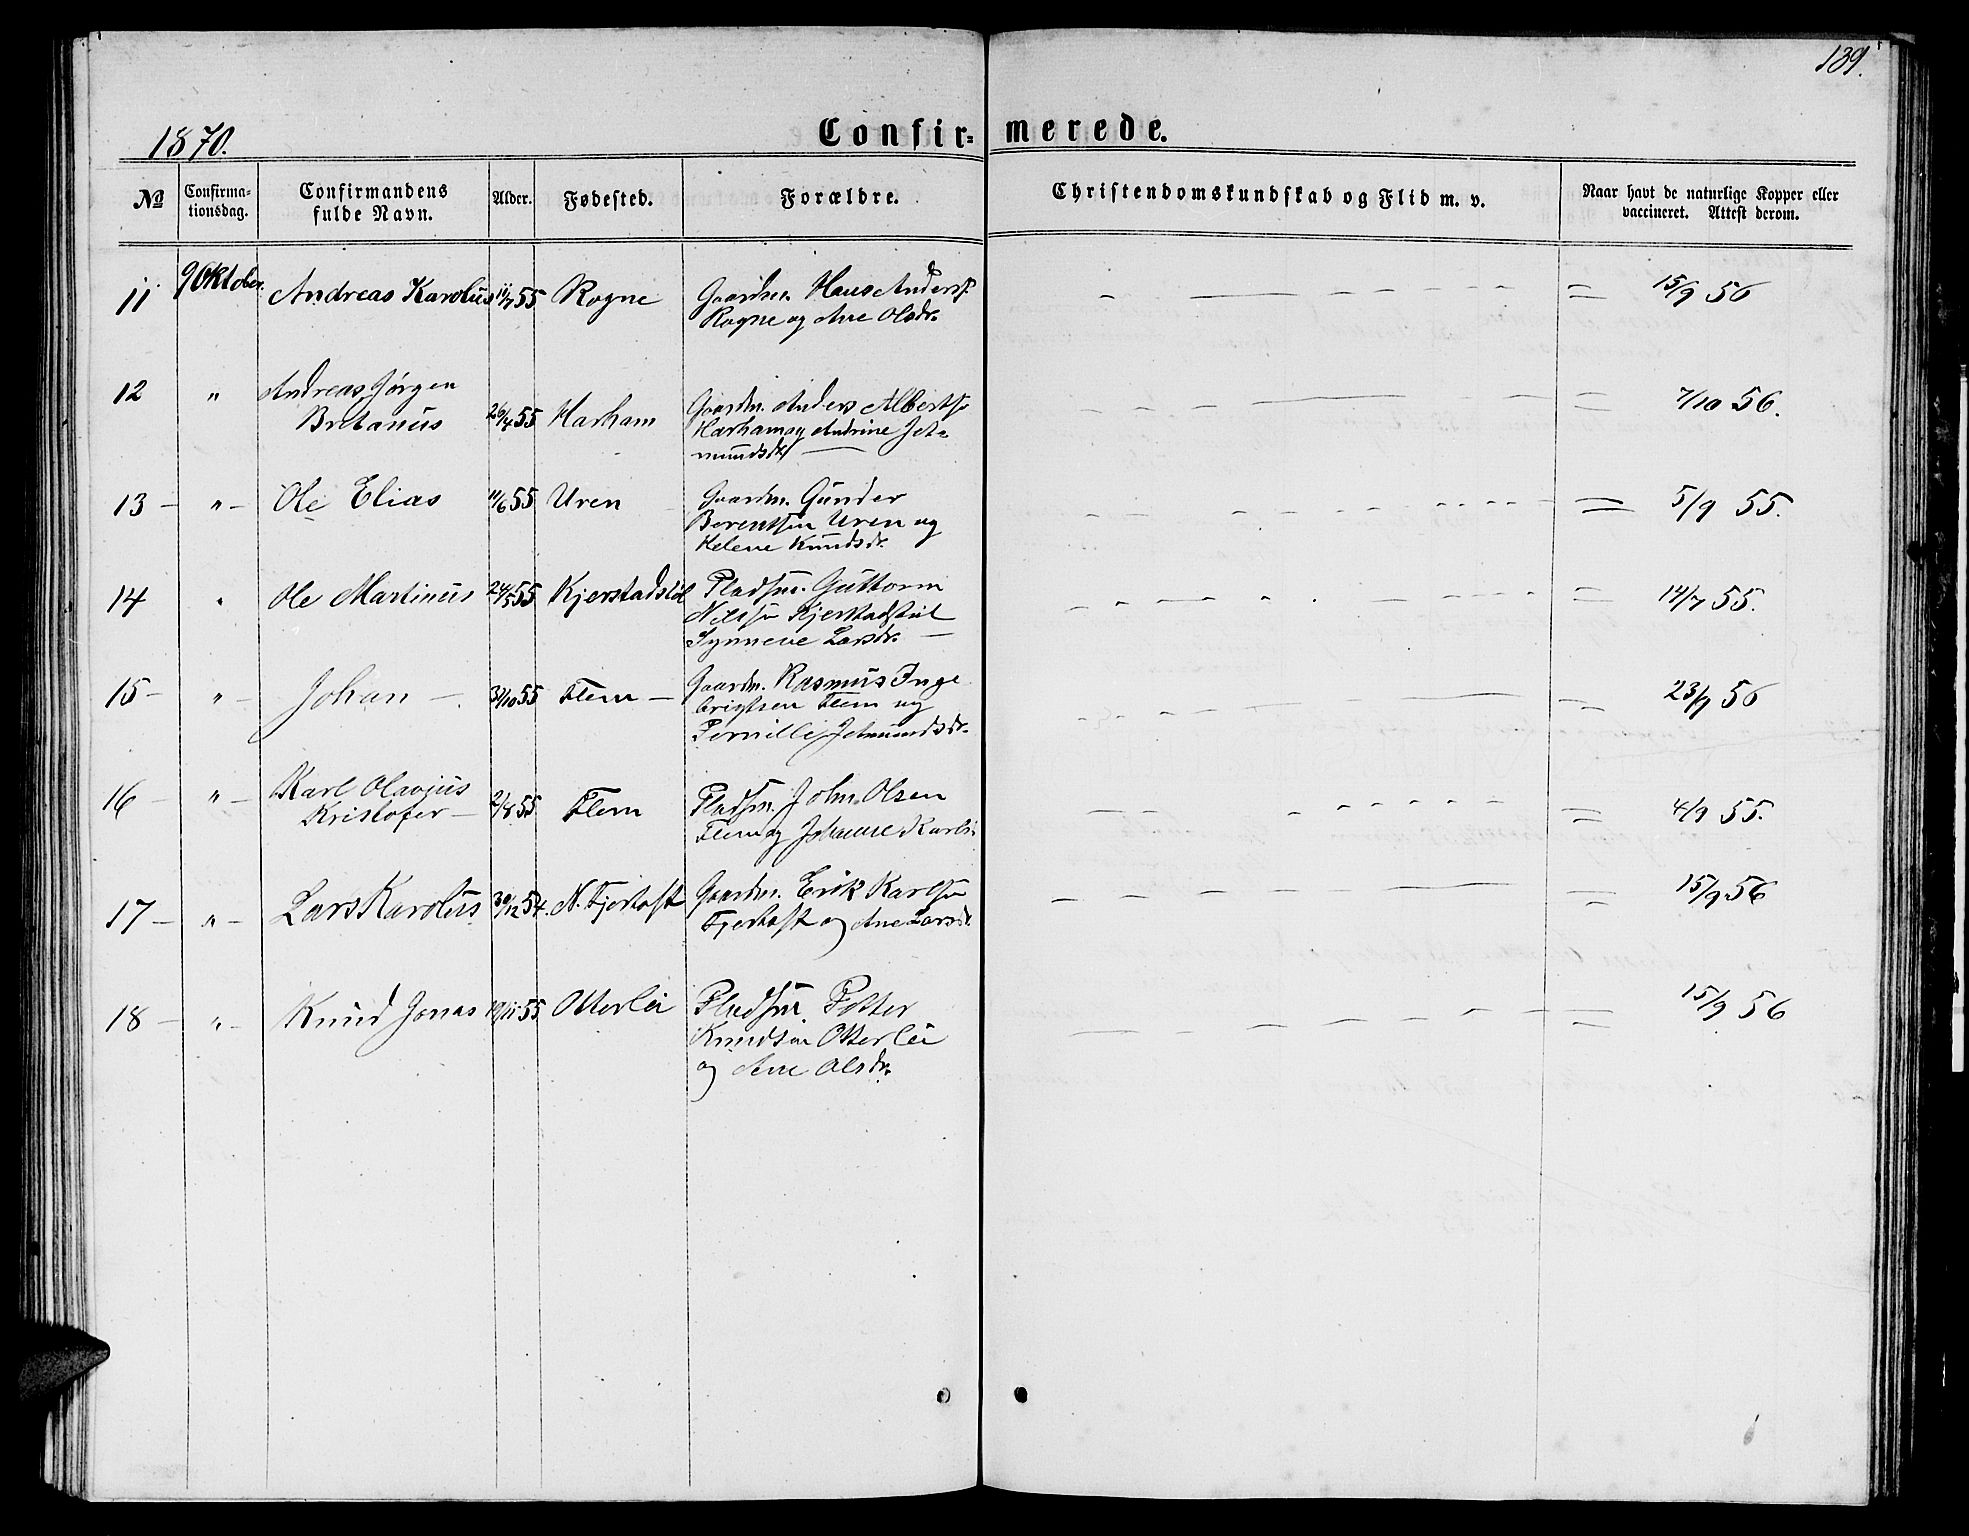 139.
1870.
Confir= merede.
No
Confirma-
tionsdag.
Confirmandens
fulde Navn.
Alder.
Fødested.
Forældre.
Christendomskundskab og Flid m. v.
Naar havt de naturlige Kopper eller
vaccineret. Attest derom.
11 9 Oktober. Andreas Karolus 11/7 55 Rogne Gaardm. Hans Anders.
Rogne og Ane Olsdr.
15/9 56
12 " Andreas Jørgen
Bretanus 26/4 55 Harham Gaardm. Anders Albertsn
Harham og Andrine Jet=
mundsdr
7/10 56.
13 - " - Ole Elias 11/6 55 Uren Gaardm. Gunder
Berentsen Uren og
Helene Knudsdr.
5/9 55.
14 " Ole Martinus 24/5 55 Kjerstadstøl Pladsm. Guttorm
Nilssn Kjerstadstøl
Synneve Larsdr.
14/7 55.
15 - " - Johan - 31/10 55 Flem - Gaardm. Rasmus Inge
brigtsen Flem og
Pernille Jetmundsdr.
23/9 56
16 - " - Karl Olavius
Kristofer - 2/8 55 Flem Pladsm. John Olsen
Flem og Johanne Karls.
4/9 55.
17 - " - Lars Karolus 30/12 54. N. Fjertoft Gaardm. Erik Karlsn
Fjertoft og Ane Larsdr.
15/9 56
18 - " - Knud Jonas 19/11 55 Otterlei Pladsm. Petter
Knudsen Otterlei
og Ane Olsdr.
15/9 56